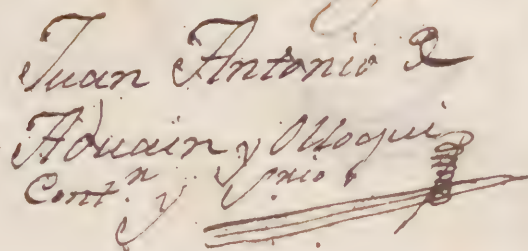 Juan Antonio De
Aduain y Olloqui
Cont.n y